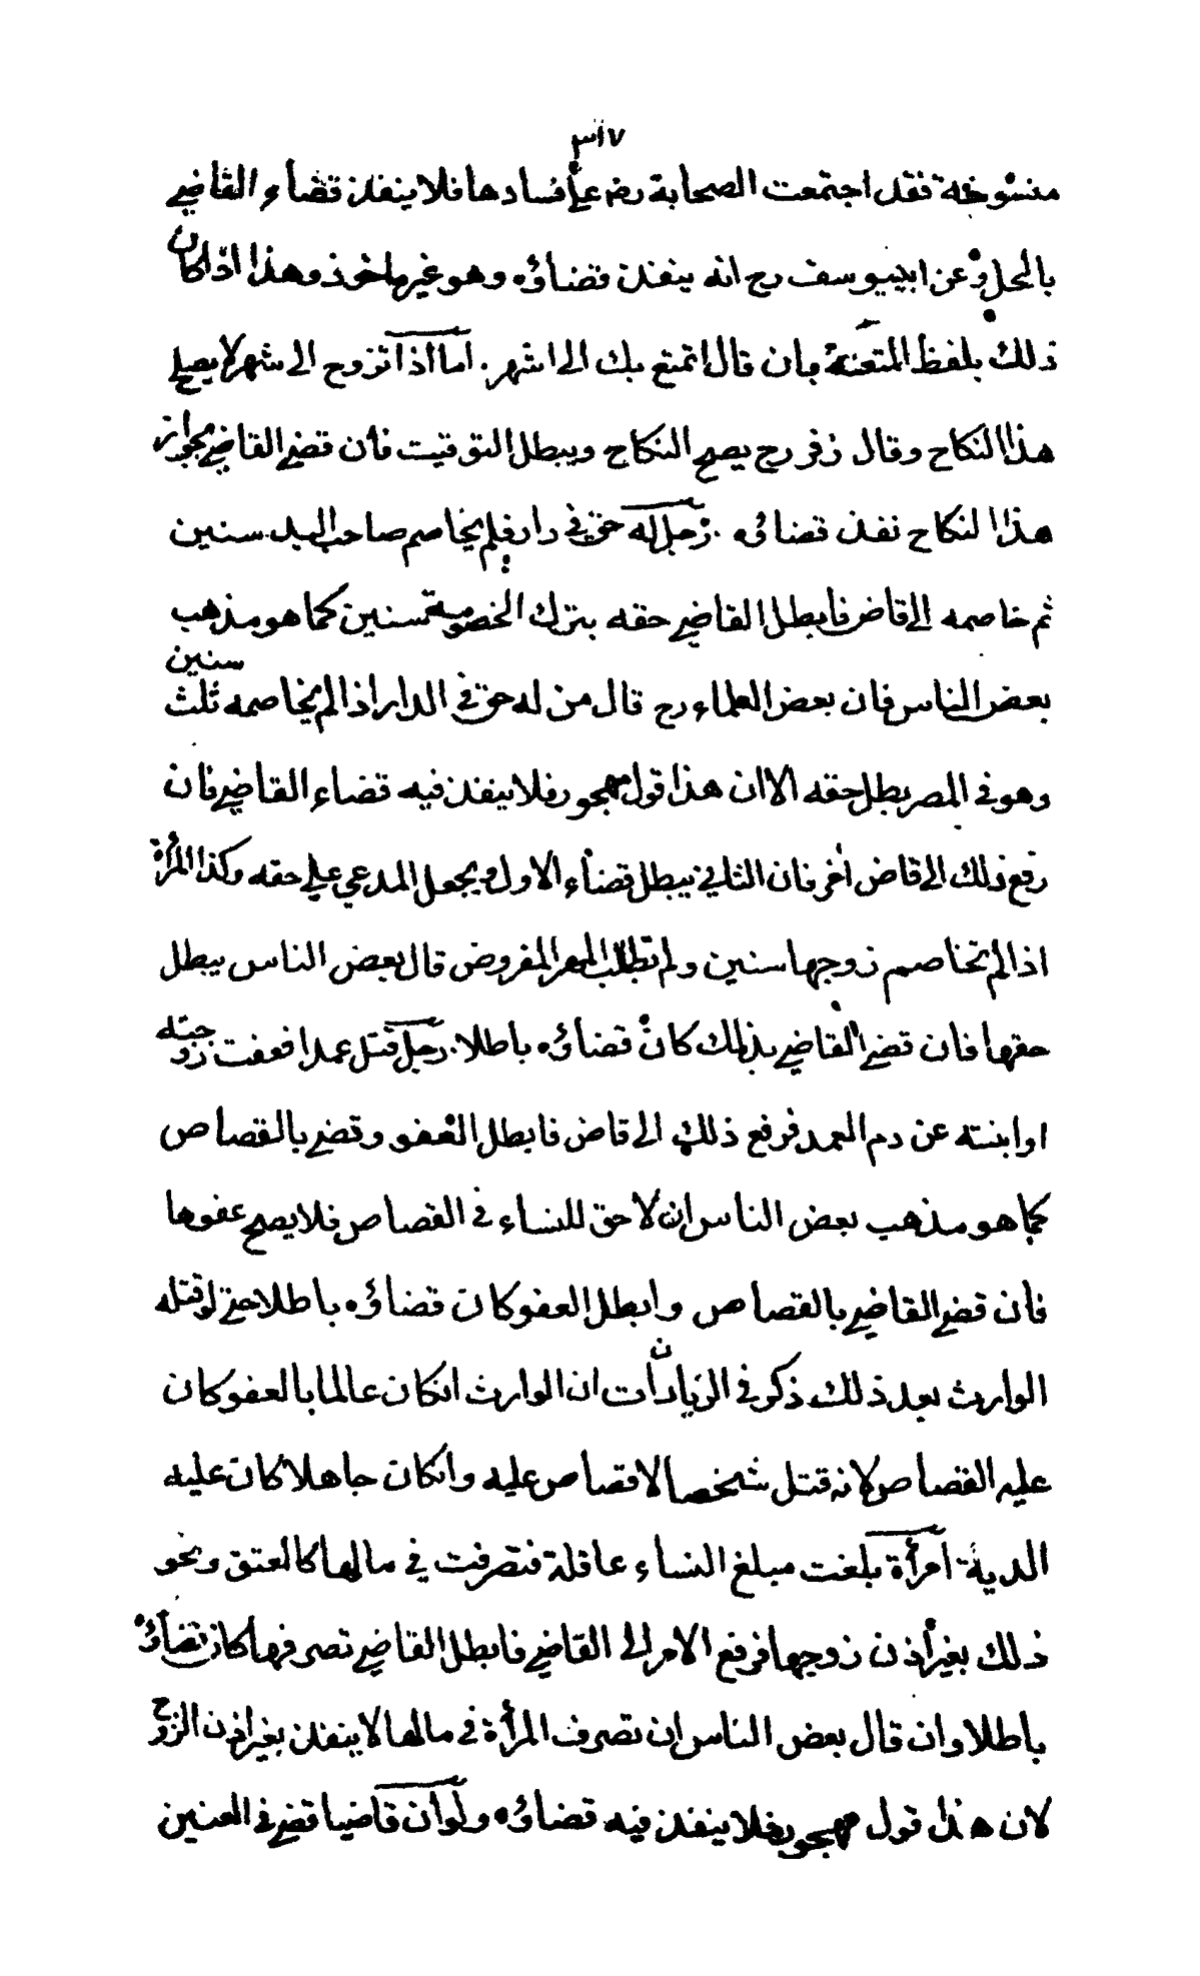 ٣١٧
منسوخة فقد اجتمعت الصحابة رضـ على فسادها فلا ينفذ قضاء القاضي
بالحل وعن ابييوسف رح انه ينفذ قضاؤه وهو غير ماخوذ وهذا اذا كان
ذلك بلفظ المتعة بان قال اتمتع بك الى اشهر . اما اذا تزوج الى شهر لا يصح
هذا النكاح وقال زفر رح يصح النكاح ويبطل التوقيت فان قضى القاضي بجواز
هذا النكاح نفذ قضائه . رجل له حق في دار فلم يخاصم صاحب اليد سنين
ثم خاصمه الى قاض فابطل القاضي حقه بترك الخصومة سنين كما هو مذهب
بعض الناس فان بعض العلماء رح قال من له حق في الدار اذا لم يخاصمه ثلث سنين
وهو في المصر بطل حقه الا ان هذا قول مهجور فلا ينفذ فيه قضاء القاضي فان
رفع ذلك الى قاض اخر فان الثاني يبطل قضاء الاول ويجعل المدعي على حقه وكذا المرأة
اذا لم تخاصم زوجها سنين ولم تطلب المهر المفروض قال بعض الناس يبطل
حقها فان قضى القاضي بذلك كان قضاؤه باطلا . رجل قتل عمدا فعفت زوجته
او ابنته عن دم العمد فرفع ذلك الى قاض فابطل العفو وقضى بالقصاص
كما هو مذهب بعض الناس ان لا حق للنساء في القصاص فلا يصح عفوها
فان قضى القاضي بالقصاص وابطل العفو كان قضاؤه باطلا حتى لو قتله
الوارث بعد ذلك ذكر في الزيادات ان الوارث انكان عالما بالعفو كان
عليه القصاص لانه قتل شخصا لا قصاص عليه وانكان جاهلا كان عليه
الدية . امرأة بلغت مبلغ النساء عاقلة فتصرفت في مالها كالعتق ونحو
ذلك بغير اذن زوجها فرفع الامر الى القاضي فابطل القاضي تصرفها كان قضاؤه
باطلا وان قال بعض الناس ان تصرف المرأة في مالها لا ينفذ بغير اذن الزوج
لان هذا قول مهجور فلا ينفذ فيه قضاؤه ولو ان قاضيا قضى في العنين